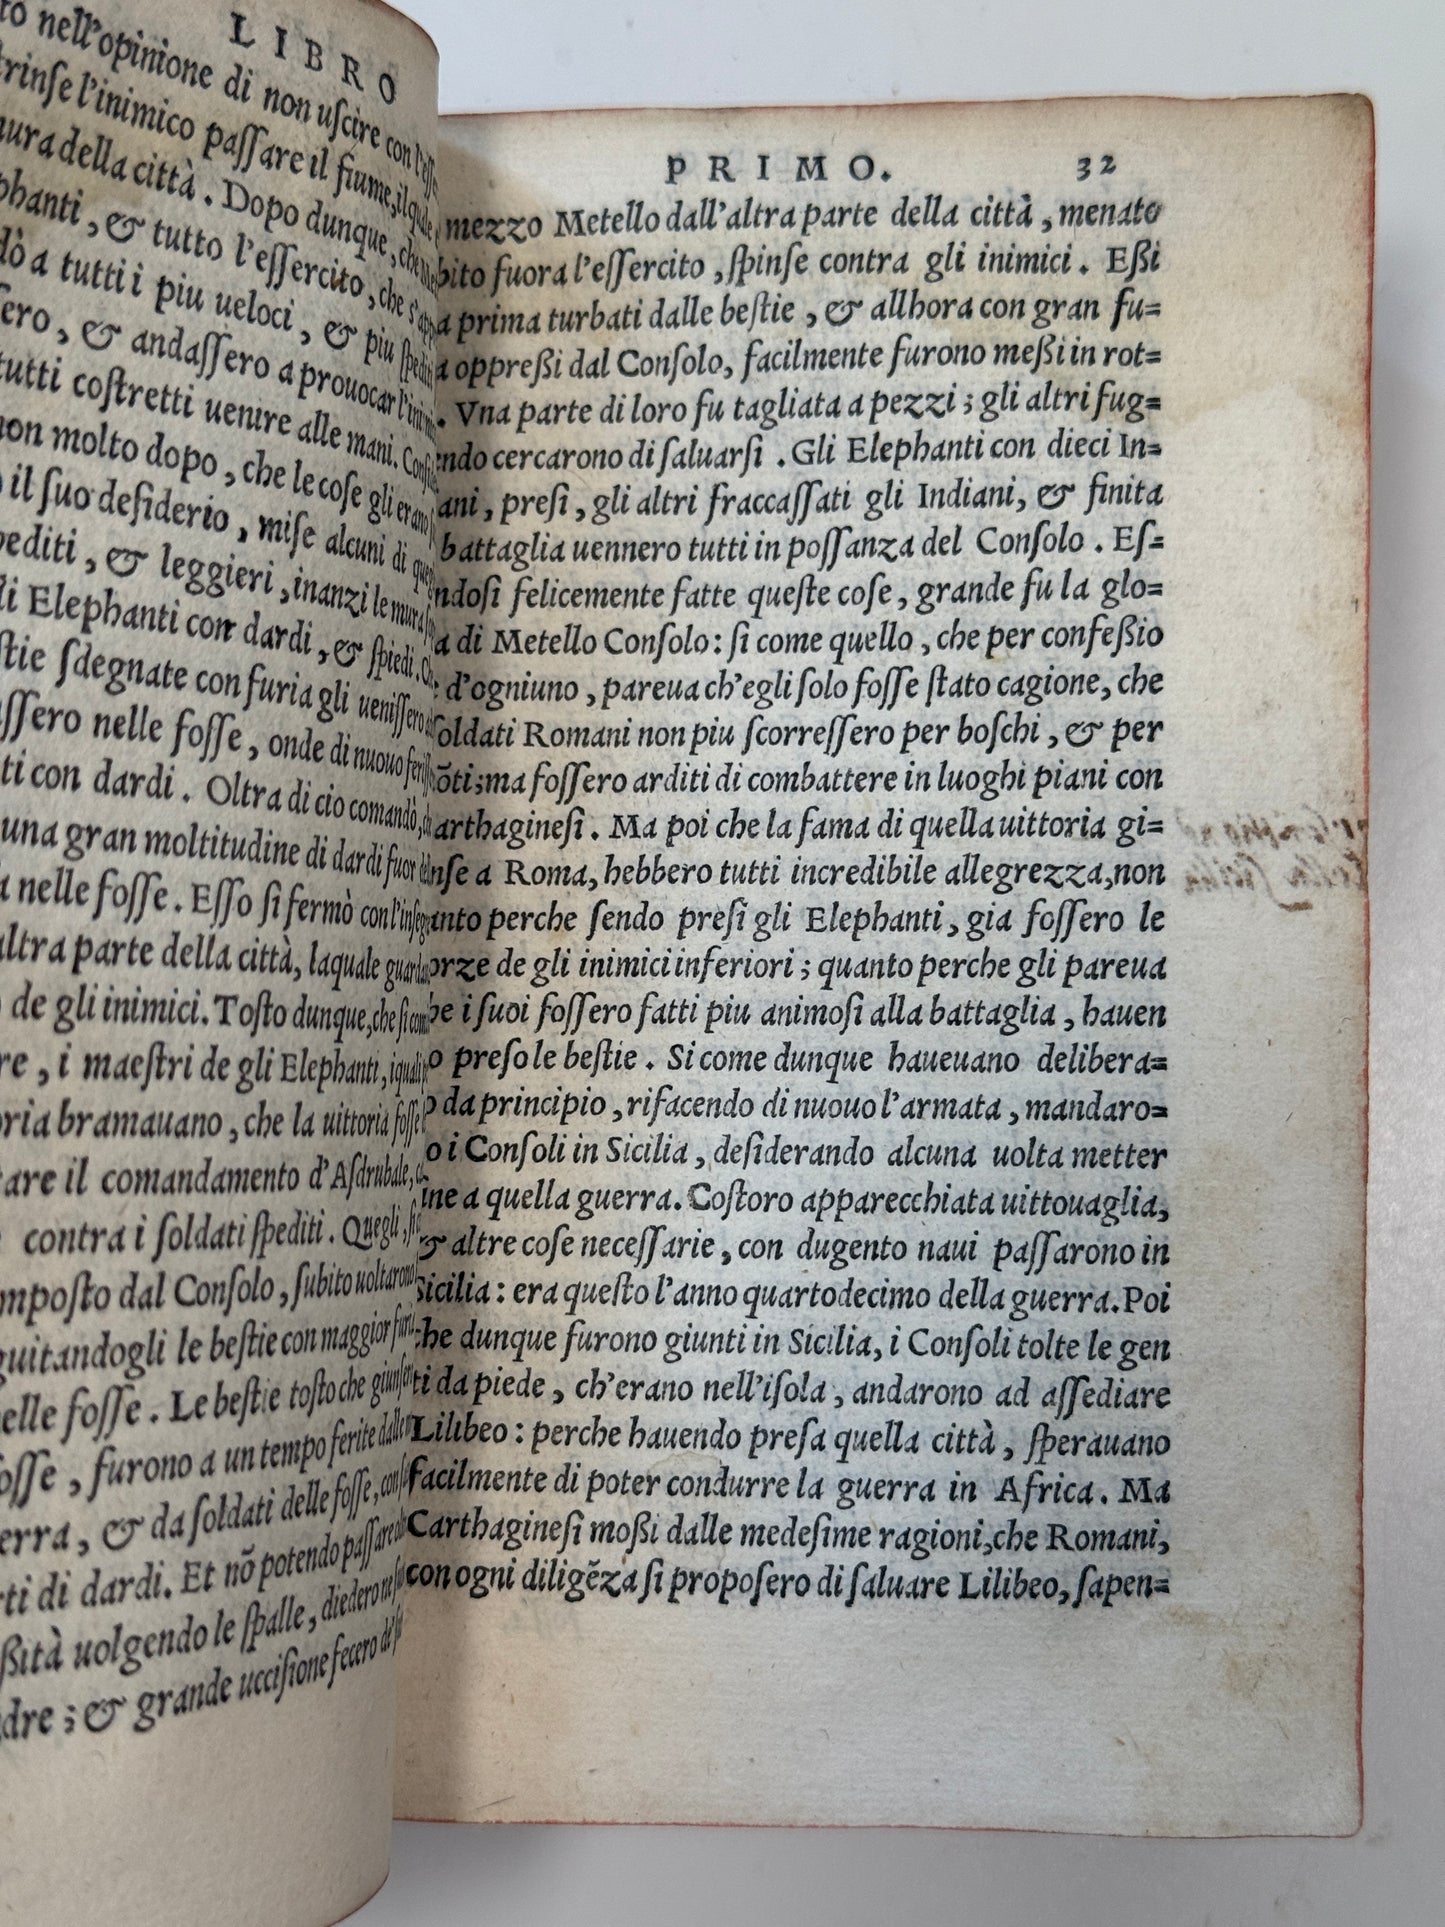 LIBRO
to nell'opinione di non uſcire con l'eſſ
trinſe l'inimico paſſare il fiume, ilquale
mura della città. Dopo dunque, che Me
phanti, & tutto l'eſſercito, che s'app
dò a tutti i piu ueloci, & piu ſpediti
ſero, & andaſſero a prouocar l'inimi
tutti coſtretti uenire alle mani. Conſi
non molto dopo, che le coſe gli erano
il ſuo deſiderio, miſe alcuni di que
pediti, & leggieri, inanzi le mura
li Elephanti con dardi, & ſpiedi. Ch
ſtie ſdegnate con furia gli ueniſſero
aſſero nelle foſſe, onde di nuouo feri
ti con dardi. Oltra di cio comandò, ch
una gran moltitudine di dardi fuor del
a nelle foſſe. Eſſo ſi fermò con l'inſeg
altra parte della città, laquale guarda
de gli inimici. Toſto dunque, che ſi com
re, i maeſtri de gli Elephanti, iquali
oria bramauano, che la uittoria foſſe
are il comandamento d'Aſdrubale,
contra i ſoldati ſpediti. Quegli, ſi
mpoſto dal Conſolo, ſubito uoltarono
guitandogli le beſtie con maggior furi
elle foſſe. Le beſtie toſto che giunſer
foſſe, furono a un tempo ferite dalle
erra, & da ſoldati delle foſſe, con
rti di dardi. Et nõ potendo paſſare
ßità uolgendo le ſpalle, diedero ne
dre; & grande ucciſione fecero de'
PRIMO. 32
mezzo Metello dall'altra parte della città, menato
bito fuora l'eſſercito, ſpinſe contra gli inimici. Eßi
a prima turbati dalle beſtie, & allhora con gran fu=
a oppreßi dal Conſolo, facilmente furono meßi in rot=
. Vna parte di loro fu tagliata a pezzi; gli altri fug=
endo cercarono di ſaluarſi. Gli Elephanti con dieci In=
ani, preſi, gli altri fraccaſſati gli Indiani, & finita
battaglia uennero tutti in poſſanza del Conſolo. Eſ=
ndoſi felicemente fatte queſte coſe, grande fu la glo=
a di Metello Conſolo: ſi come quello, che per confeßio
e d'ogniuno, pareua ch'egli ſolo foſſe ſtato cagione, che
ſoldati Romani non piu ſcorreſſero per boſchi, & per
õti; ma foſſero arditi di combattere in luoghi piani con
arthagineſi. Ma poi che la fama di quella uittoria gi=
nſe a Roma, hebbero tutti incredibile allegrezza, non
anto perche ſendo preſi gli Elephanti, gia foſſero le
orze de gli inimici inferiori; quanto perche gli pareua
he i ſuoi foſſero fatti piu animoſi alla battaglia, hauen
o preſo le beſtie. Si come dunque haueuano delibera=
o da principio, rifacendo di nuouo l'armata, mandaro=
o i Conſoli in Sicilia, deſiderando alcuna uolta metter
ine a quella guerra. Coſtoro apparecchiata uittouaglia,
& altre coſe neceſſarie, con dugento naui paſſarono in
Sicilia: era queſto l'anno quartodecimo della guerra. Poi
che dunque furono giunti in Sicilia, i Conſoli tolte le gen
ti da piede, ch'erano nell'iſola, andarono ad aſſediare
Lilibeo: perche hauendo preſa quella città, ſperauano
facilmente di poter condurre la guerra in Africa. Ma
Carthagineſi moßi dalle medeſime ragioni, che Romani,
con ogni diligẽza ſi propoſero di ſaluare Lilibeo, ſapen=